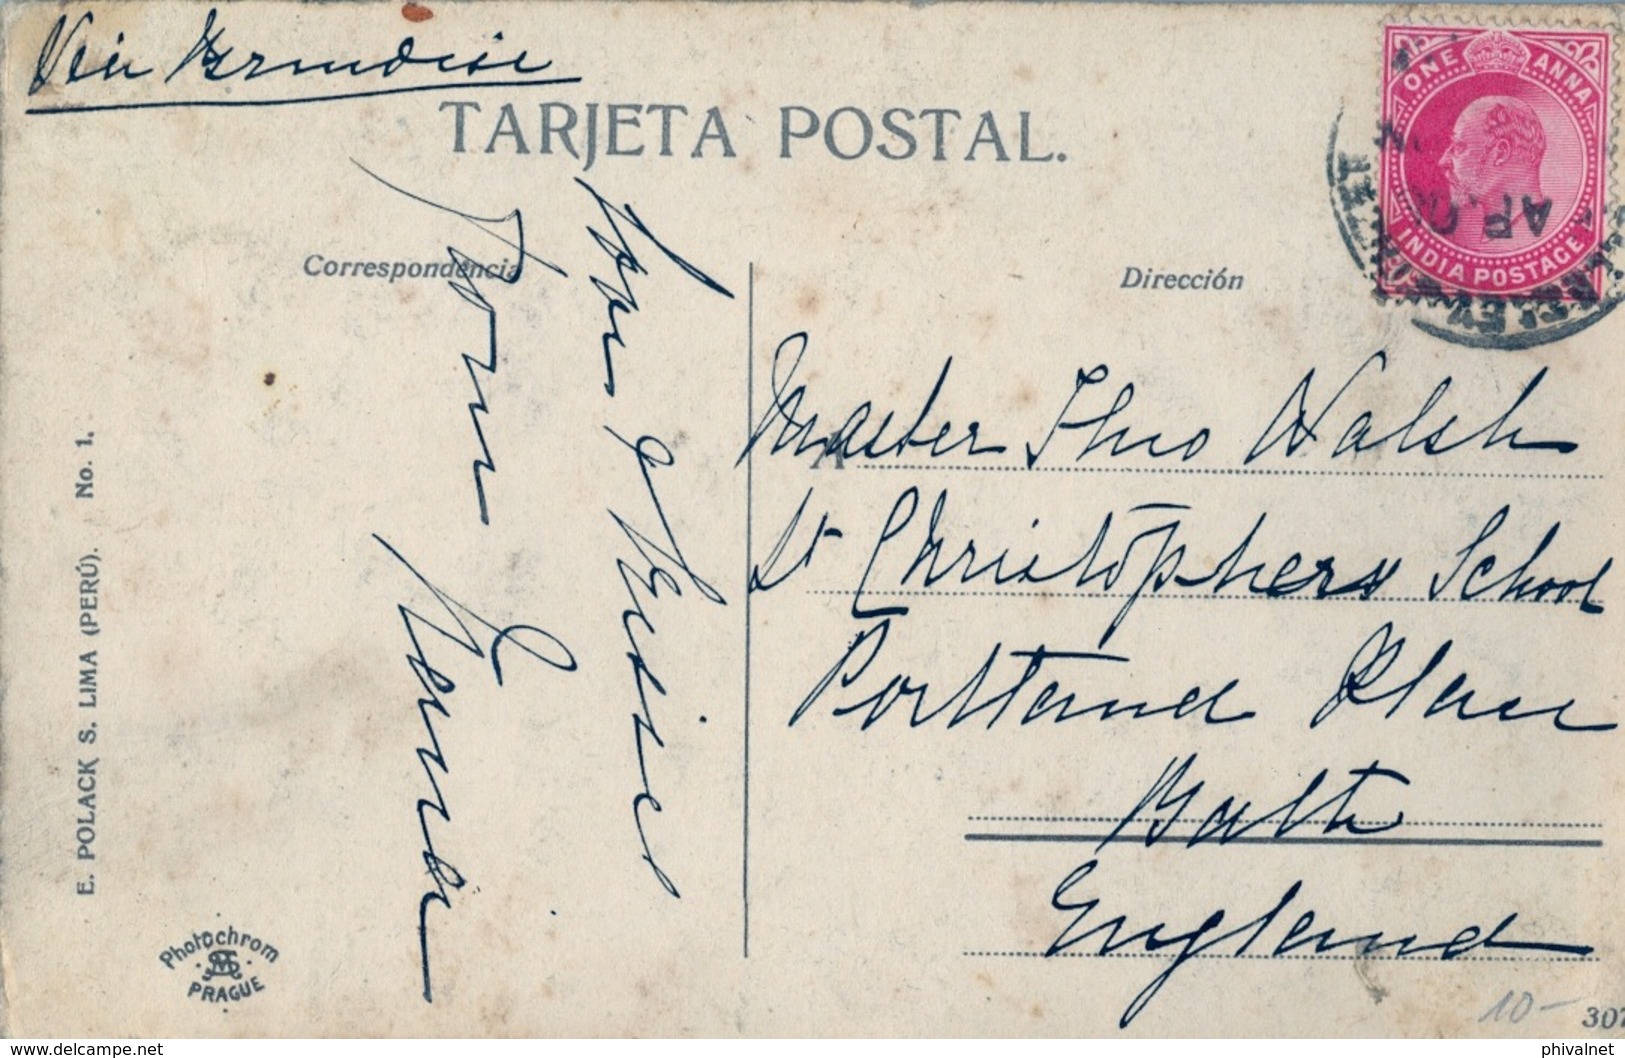 Via Brindisi
TARJETA POSTAL.
ONE ANNA
INDIA POSTAGE
Correspondencia
Dirección
Love & Kisses
from
Master Theo Walsh
A
St Christophers School
Portland Place
Bath
England
E. POLACK S. LIMA (PERÚ). No. 1.
Photochrom
PRAGUE
10-
307
delcampe.net
phivalnet